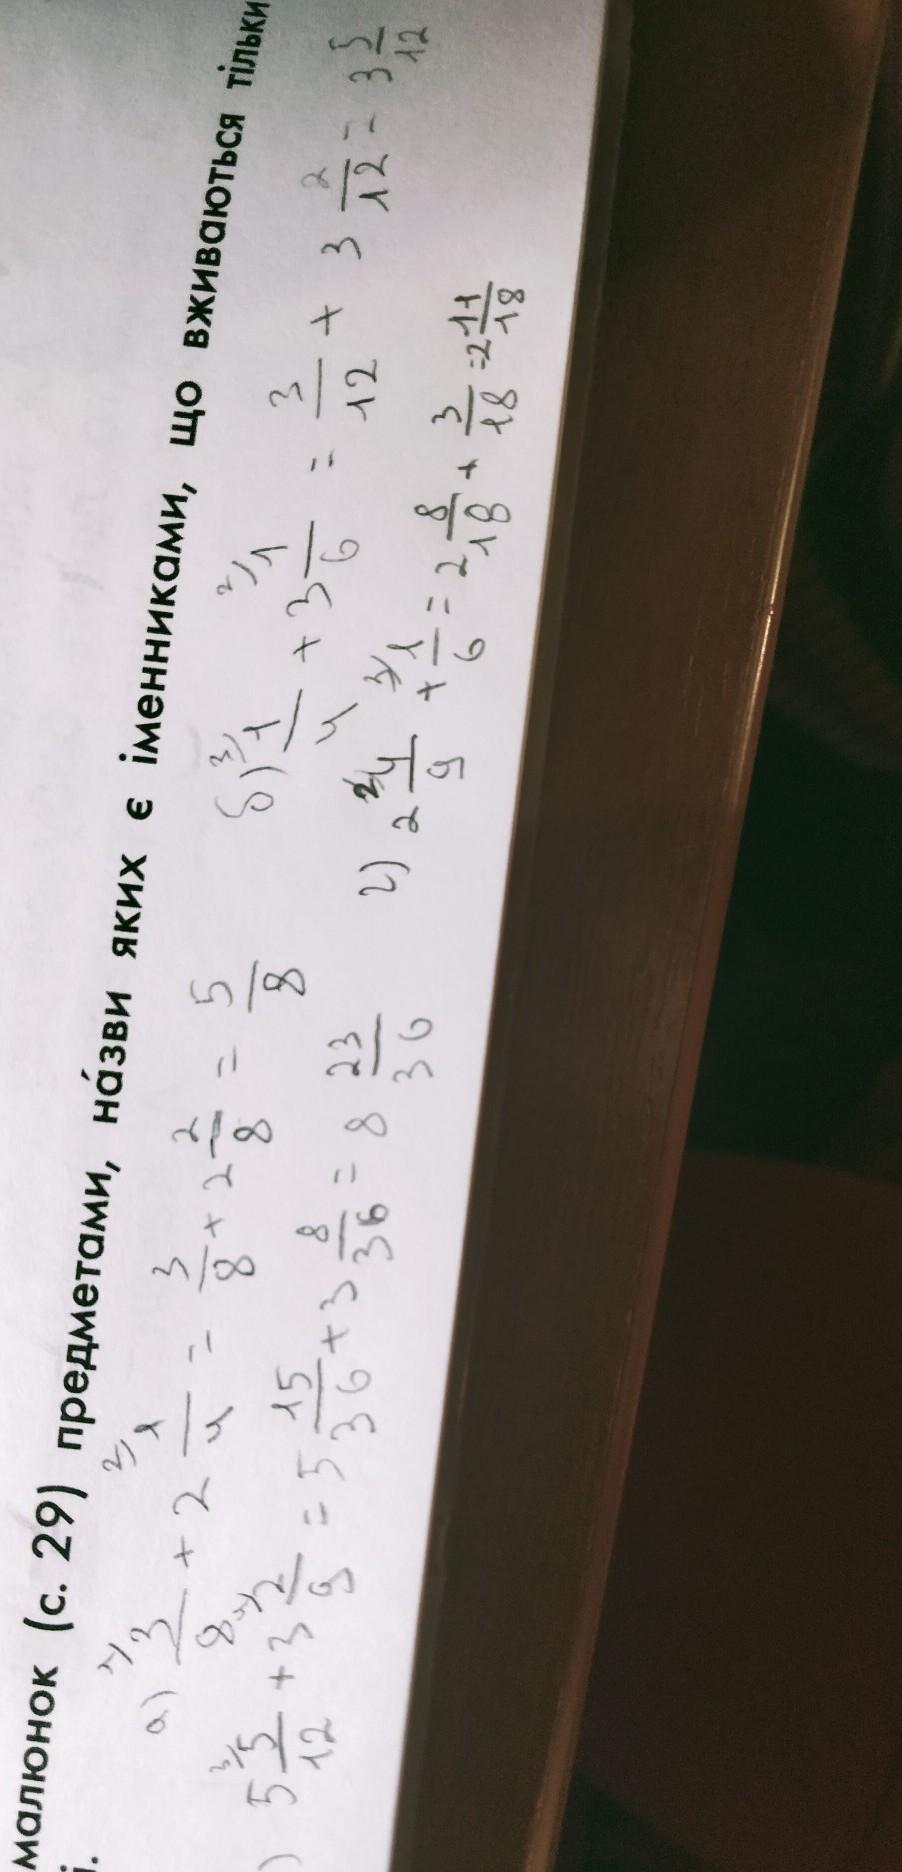 малюнок (с. 29) предметами, на́зви яких є іменниками, що вживаються тільки
і.
а) 3/8 + 2 1/4 = 3/8 + 2 2/8 = 5/8
б) 1/4 + 3 1/6 = 3/12 + 3 2/12 = 3 5/12
) 5 5/12 + 3 2/9 = 5 15/36 + 3 8/36 = 8 23/36
г) 2 4/9 + 1/6 = 2 8/18 + 3/18 = 2 11/18